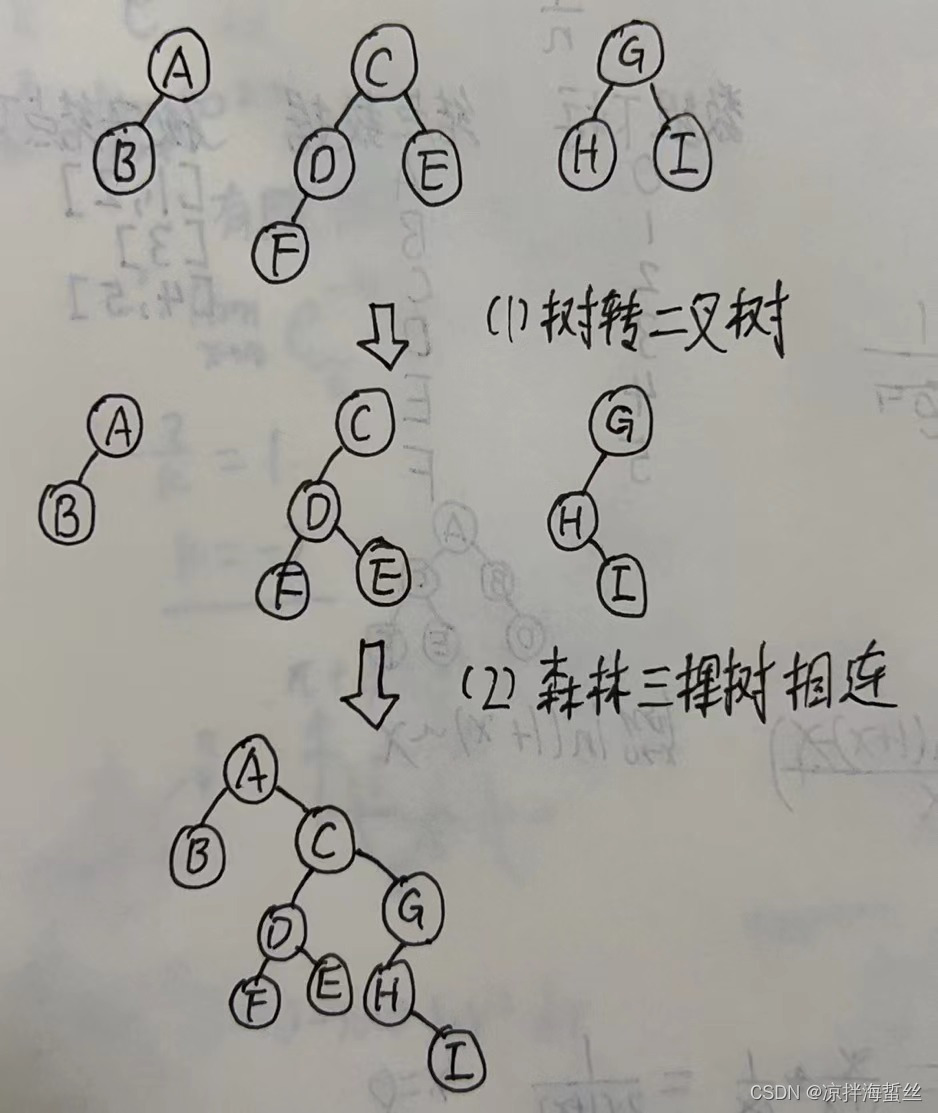 A C G
B D E H I
F
(1) 树转二叉树
A C G
B D H
F E I
(2) 森林三棵树相连
A
B C
D G
F E H
I
CSDN @凉拌海蜇丝